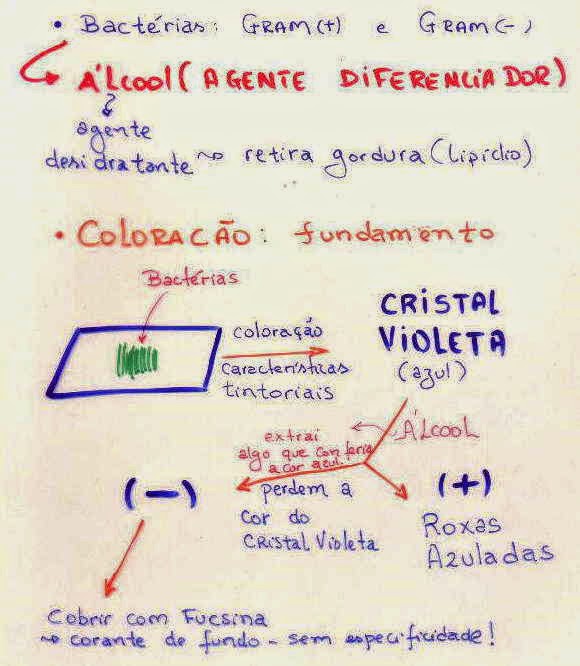 • Bactérias: GRAM(+) e GRAM(-)
ÁLcool (AGENTE DIFERENCIADOR)
agente
desidratante ~> retira gordura (Lipídio)
• COLORACÃO: fundamento
Bactérias
coloração
características
tintoriais
CRISTAL
VIOLETA
(azul)
ÁLcool
extrai
algo que conferia
a cor azul!
(-)
perdem a
cor do
CRISTAL Violeta
(+)
Roxas
Azuladas
Cobrir com Fucsina
~> corante de fundo - sem especificidade!